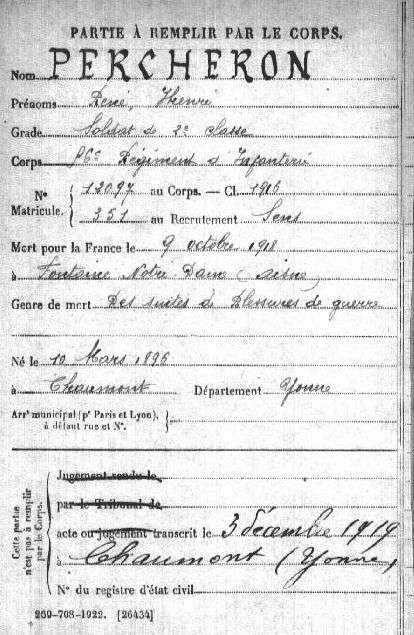 PARTIE À REMPLIR PAR LE CORPS.
Nom PERCHERON
Prénoms René, Henri
Grade Soldat de 2e classe
Corps Régiment d'Infanterie
N° Matricule. { 12097 au Corps. — Cl. 1916
351 au Recrutement Sens
Mort pour la France le 9 octobre 1918
à Fontaine Notre Dame (Aisne)
Genre de mort Des suites de blessures de guerre
Né le 10 Mars 1896
à Chaumont Département Yonne
Arrt municipal (pr Paris et Lyon), à défaut rue et N°. {
Cette partie n'est pas à remplir par le Corps.
Jugement rendu le
par le Tribunal de
acte ou jugement transcrit le 3 décembre 1919
à Chaumont (Yonne)
N° du registre d'état civil
269-708-1922. [26434]